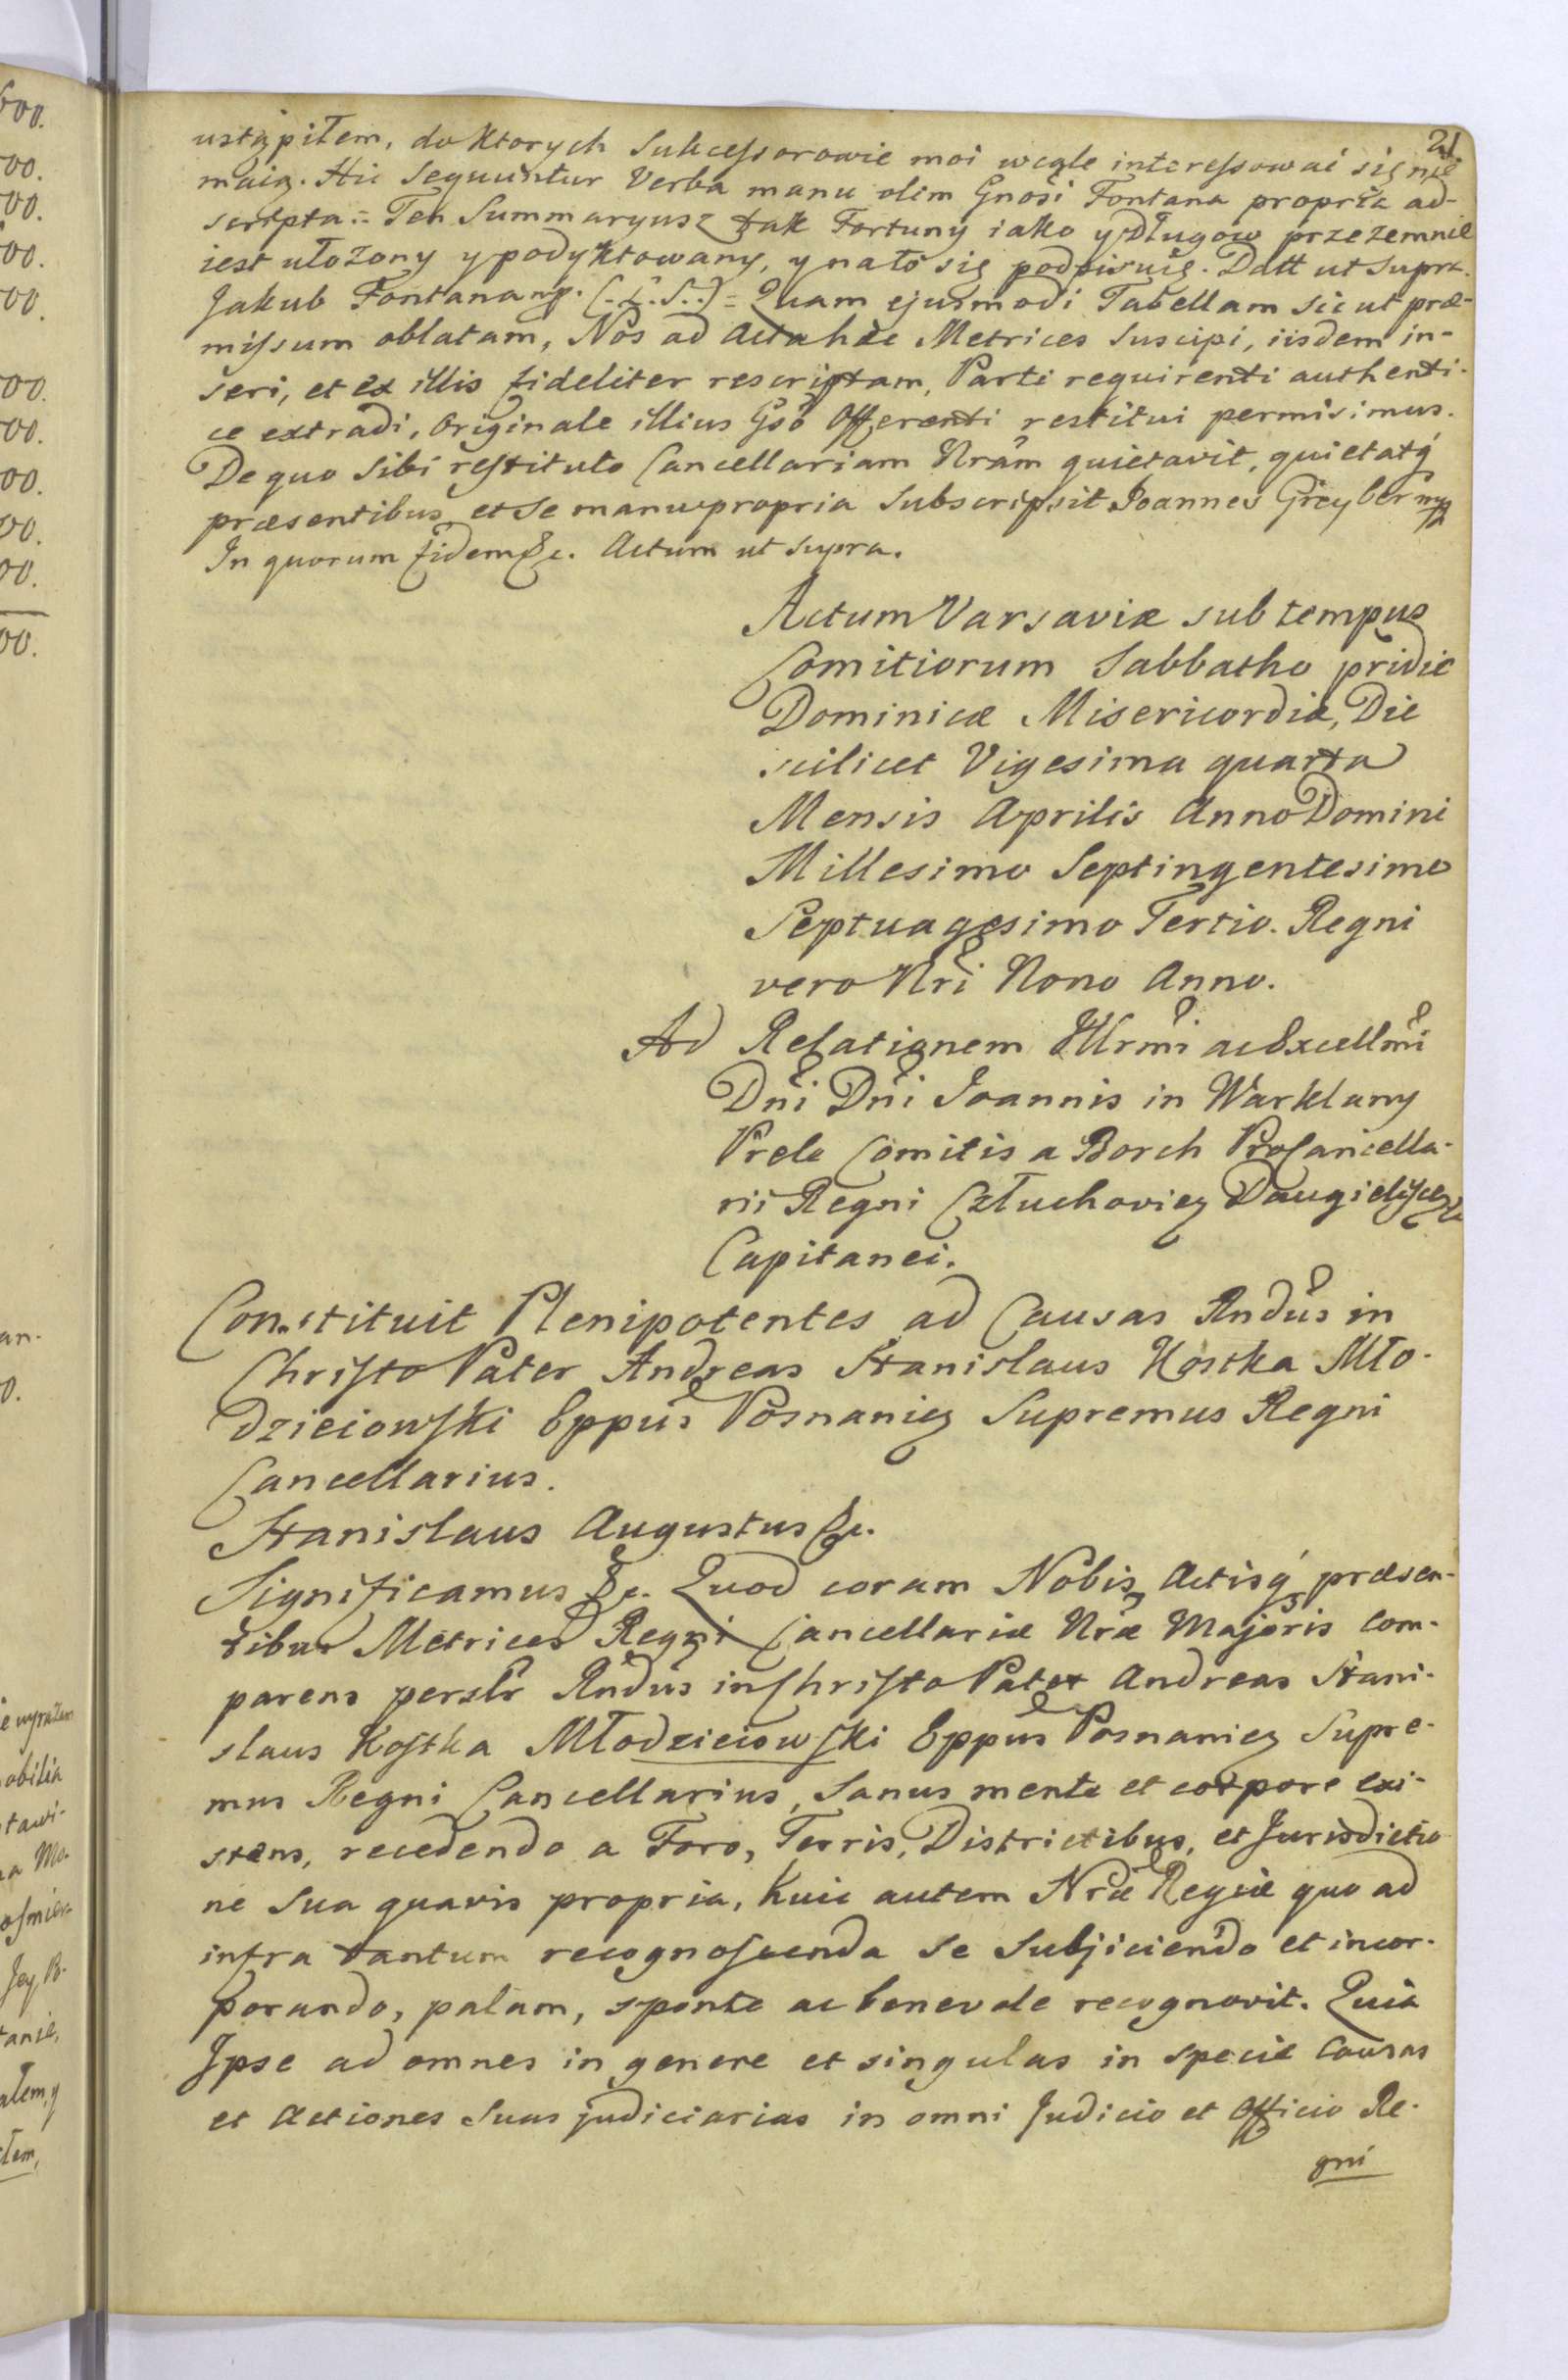 21.
ustąpiłem, do ktorych Sukcessorowie moi wcale interessować się nie
maią. Hic Sequuntur Verba manu olim Gnosi Fontana propria ad-
scripta = Ten Summaryusz tak Fortuny iako y Długow przezemnie
iest ułożony y podyktowany, y nato się podpisuię. Datt ut supra.
Jakub Fontana mp. (.L.S.) = Quam ejusmodi Tabellam sicut præ-
missum oblatam, Nos ad Acta hæc Metrices suscipi, iisdem in-
seri, et ex illis fideliter rescriptam, Parti requirenti authenti-
ce extradi, Originale illius Gso Offerenti restitui permisimus.
De quo sibi restituto Cancellariam Nram quietavit, quietatq́
præsentibus et se manu propria subscripsit Joannes Greyber mp
In quorum fidem &c. Actum ut supra.
Actum Varsaviæ sub tempus
Comitiorum Sabbatho pridie
Dominicæ Misericordiæ, Die
scilicet Vigesima quarta
Mensis Aprilis Anno Domini
Millesimo Septingentesimo
Septuagesimo Tertio. Regni
vero Nri Nono Anno.
Ad Relationem Illrmi ac Excellmi
Dni Dni Joannis in Warklany
Prele Comitis a Borch ProCancella-
rii Regni Człuchovien
Capitanei.
Constituit Plenipotentes ad Causas Rndus in
Christo Pater Andreas Stanislaus Kostka Mło-
dzieiowski Eppus Posnanien Supremus Regni
Cancellarius.
Stanislaus Augustus &c.
Significamus &c. Quod coram Nobis Actisq́ præsen-
tibus Metrices Regni Cancellariæ Nræ Majoris com-
parens perslr Rndus in Christo Pater Andreas Stani-
slaus Kostka Młodzieiowski Eppus Posnanien Supre-
mus Regni Cancellarius, Sanus mente et corpore exi-
stens, recedendo a Foro, Terris, Districtibus, et Jurisdictio
ne sua quavis propria, huic autem Nræ Regiæ quo ad
infra tantum recognoscenda se subjiciendo et incor-
porando, palam, sponte ac benevole recognovit. Quia
Ipse ad omnes in genere et singulas in specie Causas
et Actiones suas judiciarias in omni Judicio et Officio Re-
gni